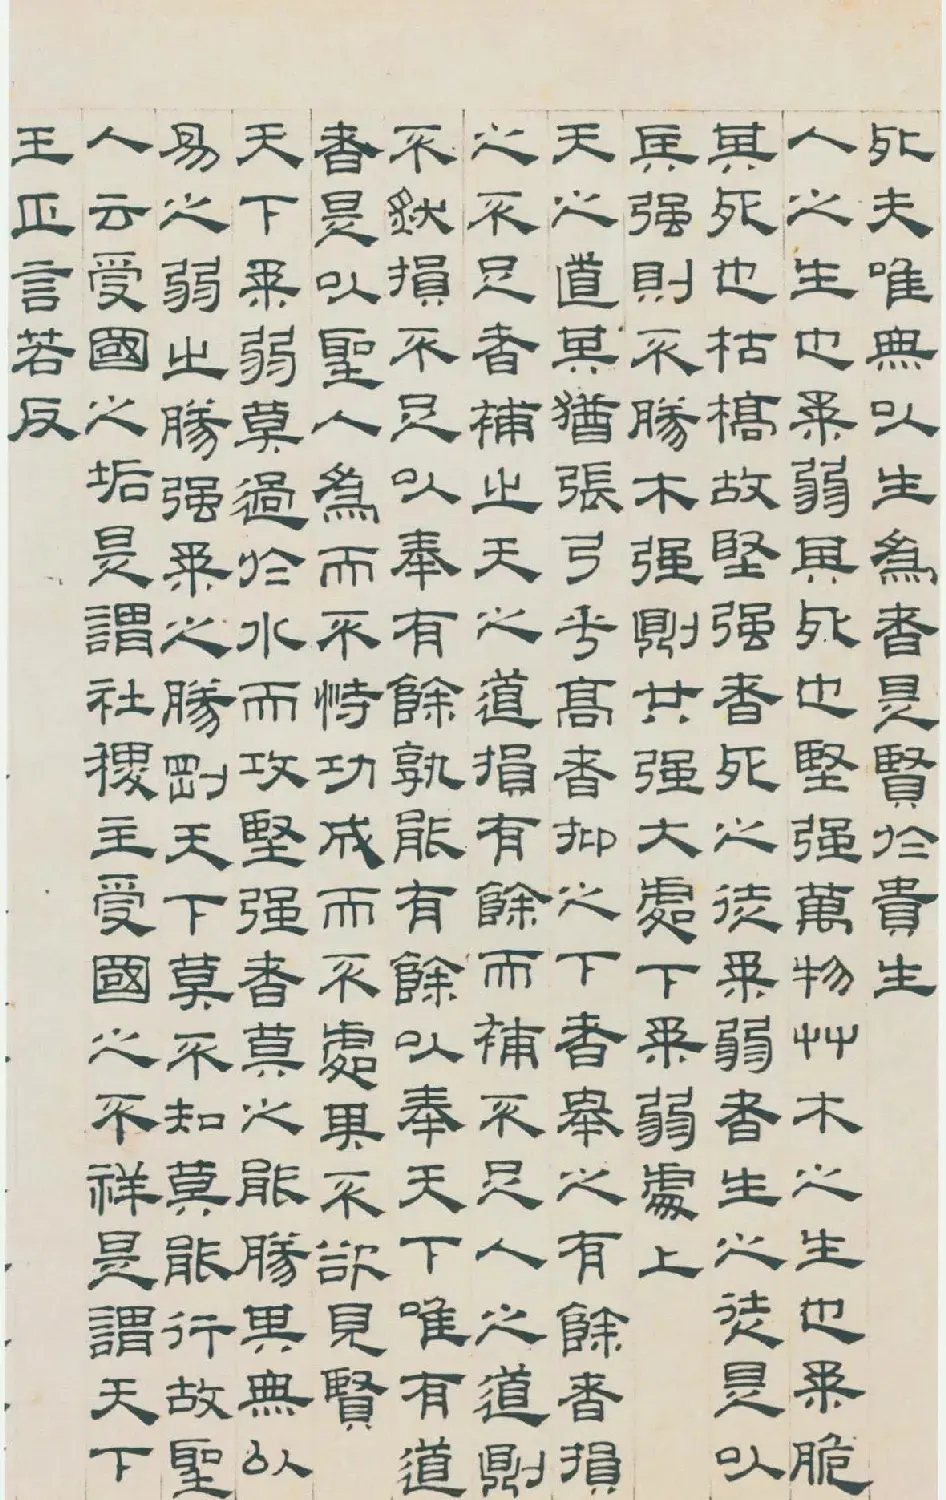 死夫唯無以生爲者是賢於貴生
人之生也柔弱其死也堅强萬物艸木之生也柔脆
其死也枯槁故堅强者死之徒柔弱者生之徒是以
兵强則不勝木强則共强大處下柔弱處上
天之道其猶張弓乎高者抑之下者舉之有餘者損
之不足者補之天之道損有餘而補不足人之道則
不然損不足以奉有餘孰能有餘以奉天下唯有道
者是以聖人爲而不恃功成而不處其不欲見賢
天下柔弱莫過於水而攻堅强者莫之能勝其無以
易之弱之勝强柔之勝剛天下莫不知莫能行故聖
人云受國之垢是謂社稷主受國之不祥是謂天下
王正言若反